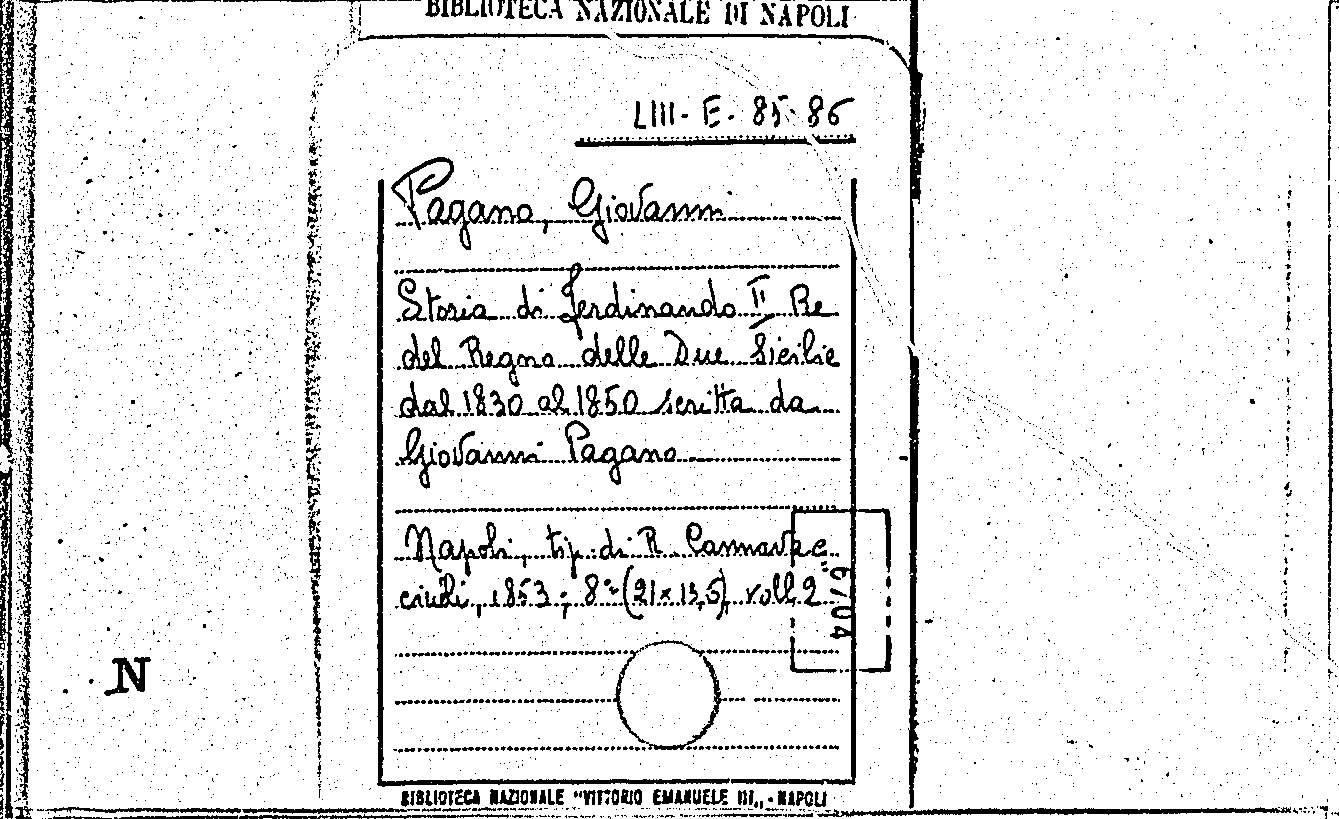 BIBLIOTECA NAZIONALE DI NAPOLI
LIII-E-85-86
Pagano, Giovanni
Storia di Ferdinando II Re
del Regno delle Due Sicilie
dal 1830 al 1850 scritta da
Giovanni Pagano
Napoli, tip. di R.
1853; 8° (21x13,5), voll. 2
BIBLIOTECA NAZIONALE "VITTORIO EMANUELE III„ - NAPOLI
N